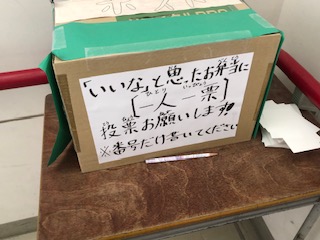 ポスト
「いいな」と思ったお弁当に
〔一人一票〕
投票お願いします!
※番号だけ書いてください